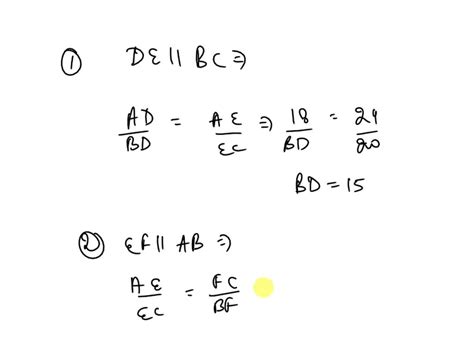 ① DE || BC ⇒
AD/BD = AE/EC ⇒ 18/BD = 24/20
BD = 15
② EF || AB ⇒
AE/EC = FC/BF